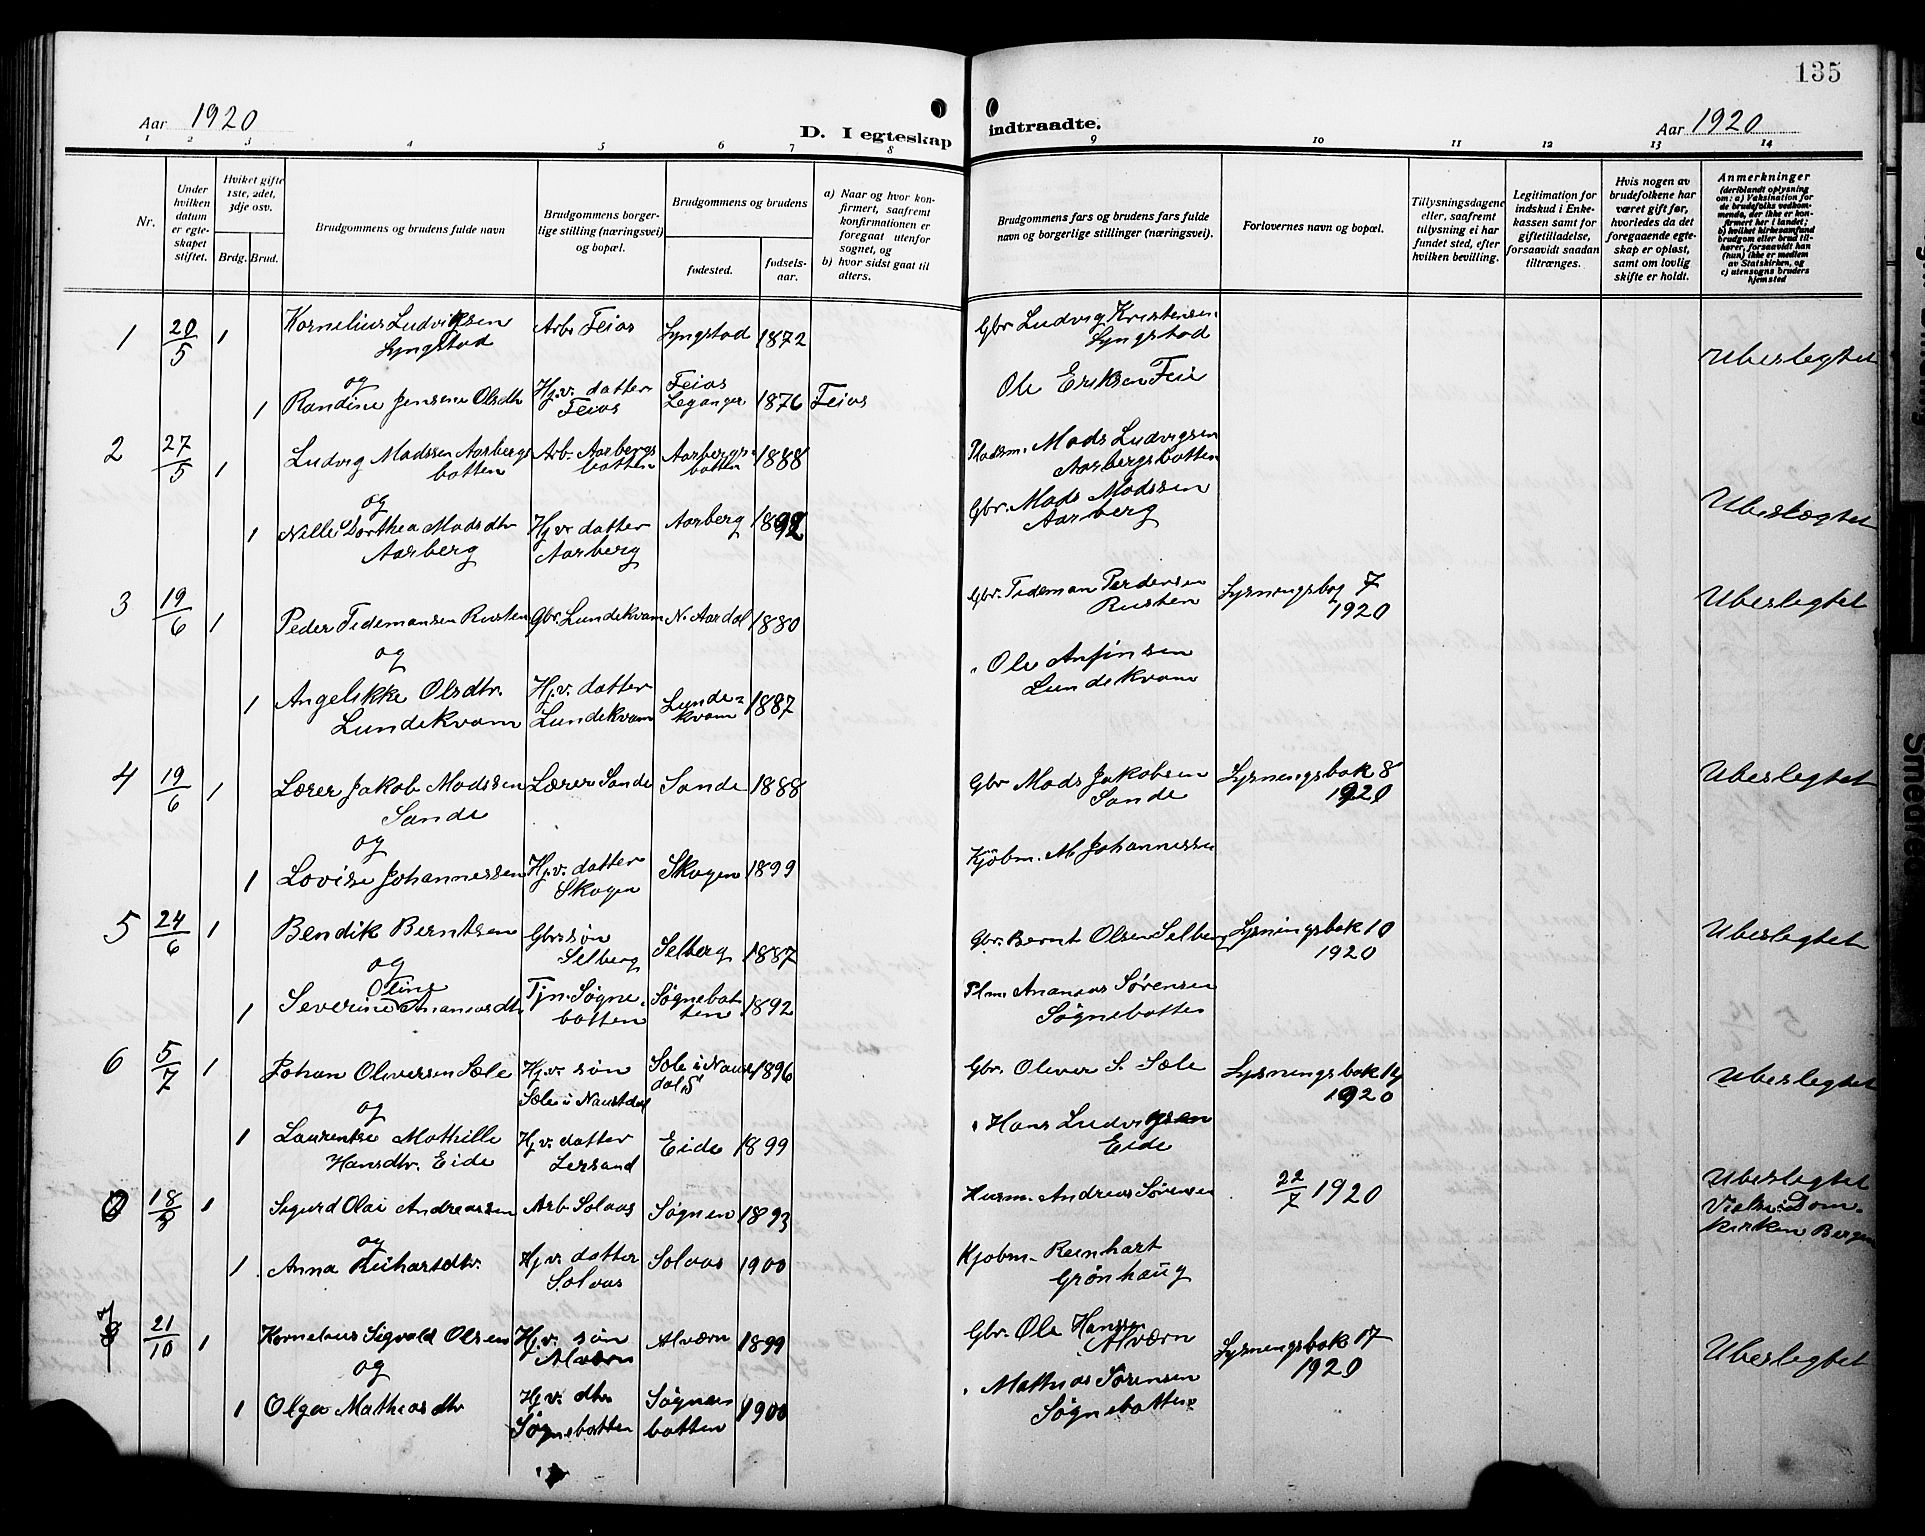 135
Aar 1920
D. I egteskap
indtraadte.
Aar 1920
1 2 3 4 5 6 7 8 9 10 11 12 13 14
Nr.
Under hvilken datum er egteskapet stiftet.
Hviket gifte 1ste, 2det, 3dje osv.
Brdg. Brud.
Brudgommens og brudens fulde navn
Brudgommens borgerlige stilling (næringsvei) og bopæl.
Brudgommens og brudens
fødested.
fødselsaar.
a) Naar og hvor konfirmert, saafremt konfirmationen er foregaat utenfor sognet, og
b) hvor sidst gaat til alters.
Brudgommens fars og brudens fars fulde navn og borgerlige stillinger (næringsvei).
Forlovernes navn og bopæl.
Tillysningsdagene eller, saafremt tilysning ei har fundet sted, efter hvilken bevilling.
Legitimation for indskud i Enkekassen samt for giftetilladelse, forsaavidt saadan tiltrænges.
Hvis nogen av brudefolkene har været gift før, hvorledes da det foregaaende egteskap er opløst, samt om lovlig skifte er holdt.
Anmerkninger
(deriblandt oplysning om: a) Vaksination for de brudefolks vedkommende, der ikke er konfirmert her i landet; b) hvilket kirkesamfund brudgom eller brud tilhører, forsaavidt han (hun) ikke er medlem av Statskirken, og c) utensogns bruders hjemsted
1 20/5 1 Kornelius Ludvigsen Lyngstad Arb. Feios Lyngstad 1872 Gbr Ludvig Kristensen Lyngstad Ubeslegtet
og
1 Randine Jensine Olsdtr Hj.v. datter Feios Feios Leganger 1876 Feios Ole Eriksen Feie
2 27/5 1 Ludvig Madssen Aarbergsbotten Arb. Aarbergsbotten Aarbergsbotten 1888 Pladsm. Mads Ludvigsen Aarbergsbotten
og
1 Nille Dorthea Madsdtr Aarberg Hjv datter Aarberg Aarberg 1892 Gbr. Mads Madssen Aarberg Ubeslægtet
3 19/6 1 Peder Tidemansen Rusten Gbr. Lundekvam N. Aardal 1880 Gbr. Tideman Pedersen Rusten Lysningsbog 7 1920 Ubeslegtet
og
1 Angelikke Olsdtr. Lundekvam Hj.v. datter Lundekvam Lundekvam 1887 " Ole Anfinsen Lundekvam
4 19/6 1 Lærer Jakob Madssen Sande Lærer Sande Sande 1888 Gbr Mads Jakobsen Sande Lysningsbok 8 1920 Ubeslegtet
og
1 Lovise Johannessen Hj.v. datter Skogen Skogen 1899 Kjöbm. M Johannessen
5 24/6 1 Bendik Berntsen Gbrsøn Selberg Selberg 1887 Gbr. Bernt Olsen Selberg Lysningsbok 10 1920 Ubeslegtet
og
1 Severine Oline Ananiasdtr Tjn. Søgnebotten Søgnebotten 1892 Plm. Ananias Sørensen Søgnebotten
6 5/7 1 Johan Oliversen Sæle Hj.v. søn Sæle i Naustdal Sæle i Naustdal 1896 Gbr. Oliver S. Sæle Lysningsbok 14 1920 Ubeslegtet
og
1 Laurentse Mathille Hansdtr. Eide Hj.v. datter Lersand Eide 1899 " Hans Ludvigsen Eide
18/8 1 Sigurd Olai Andreassen Arb Solaas Søgnen 1893 Husm. Andreas Sørensen 22/7 1920 Ubeslegtet Viet i Domkirken Bergen
og
1 Anna Reihartdtr. Hj.v. datter Solaas Solaas 1900 Kjøbm. Reinhart Grønhaug
7 21/10 1 Kornelius Sigvald Olsen Hj.v. søn Alværn Alværn 1899 Gbr. Ole Hansen Alværn Lysningsbok 17 1920 Ubeslegtet
og
1 Olga Mathiasdtr Hj.v. dtr. Søgnebotten Søgnesbotten 1900 " Mathias Sørensen Søgnebotten